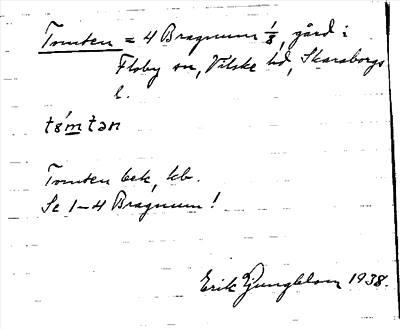 Tomten = 4 Bragnum 1/8, gård i
Floby sn, Vilske hd, Skaraborgs
l.
tåmtən
Tomten bek, kb.
Se 1–4 Bragnum!
Erik Ljungblom 1938.